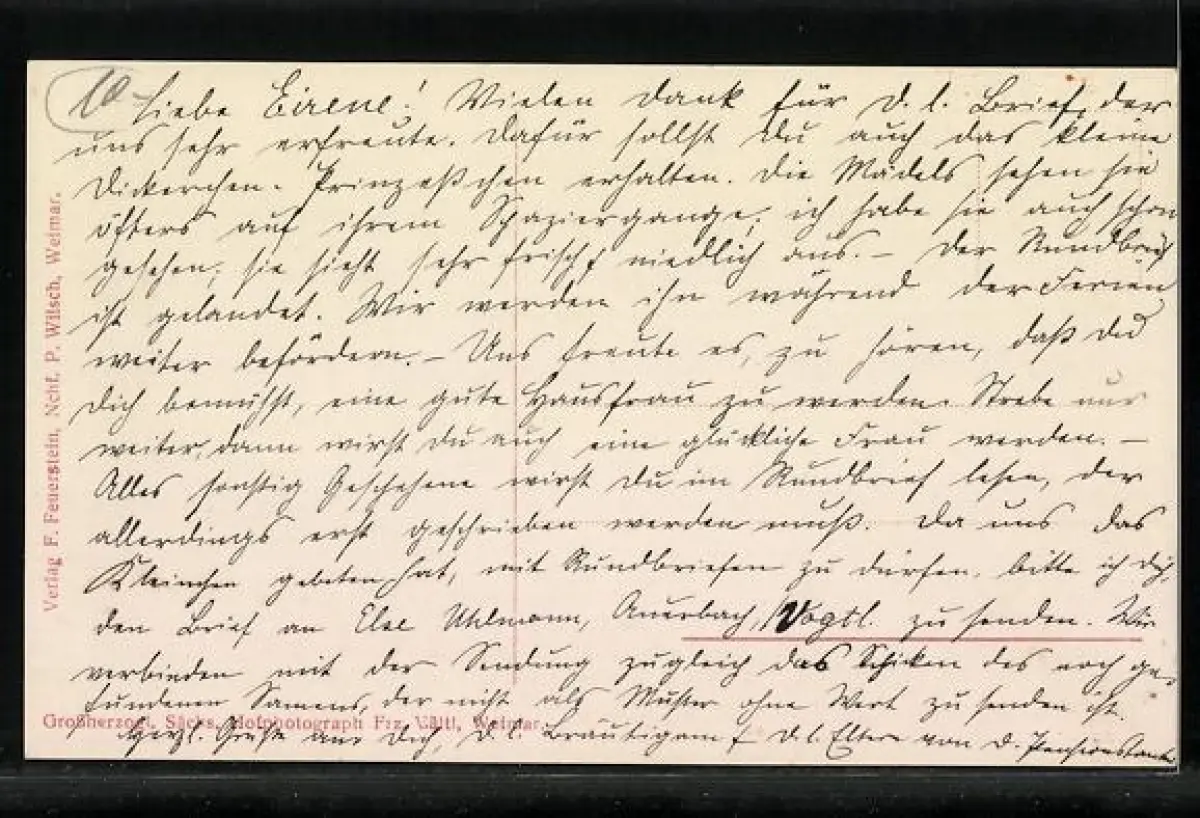 10
Liebe Eirene! Vielen Dank für d. l. Brief, der
uns sehr erfreute. Dafür sollst Du auch das kleine
Dickerchen-Prinzeßchen erhalten. Die Mädels sehen sie
öfters auf ihrem Spaziergange, ich habe sie auch schon
gesehen; sie sieht sehr frisch & niedlich aus. – Der Rundbrief
ist gelandet. Wir werden ihn während der Ferien
weiter befördern. – Uns freute es, zu hören, daß Du
Dich bemühst, eine gute Hausfrau zu werden. Strebe nur
weiter, dann wirst Du auch eine glückliche Frau werden. –
Alles sonstig Geschehene wirst Du im Rundbrief lesen, der
allerdings erst geschrieben werden muß. Da uns das
Kleinchen gebeten hat, mit Rundbriefen zu dürfen, bitte ich Dich,
den Brief an Else Uhlmann, Auerbach, Vogtl. zu senden. Wir
verbinden mit der Sendung zugleich das Schicken des noch ge-
fundenen Samens, der nicht als Muster ohne Wert zu senden ist.
Herzl. Grüße an Dich, D. l. Bräutigam & D. l. Eltern von D. Pensionstante
Verlag F. Feuerstein, Nchf. P. Wilsch, Weimar.
Großherzogl. Sächs. Hofphotograph Frz. Vältl, Weimar.